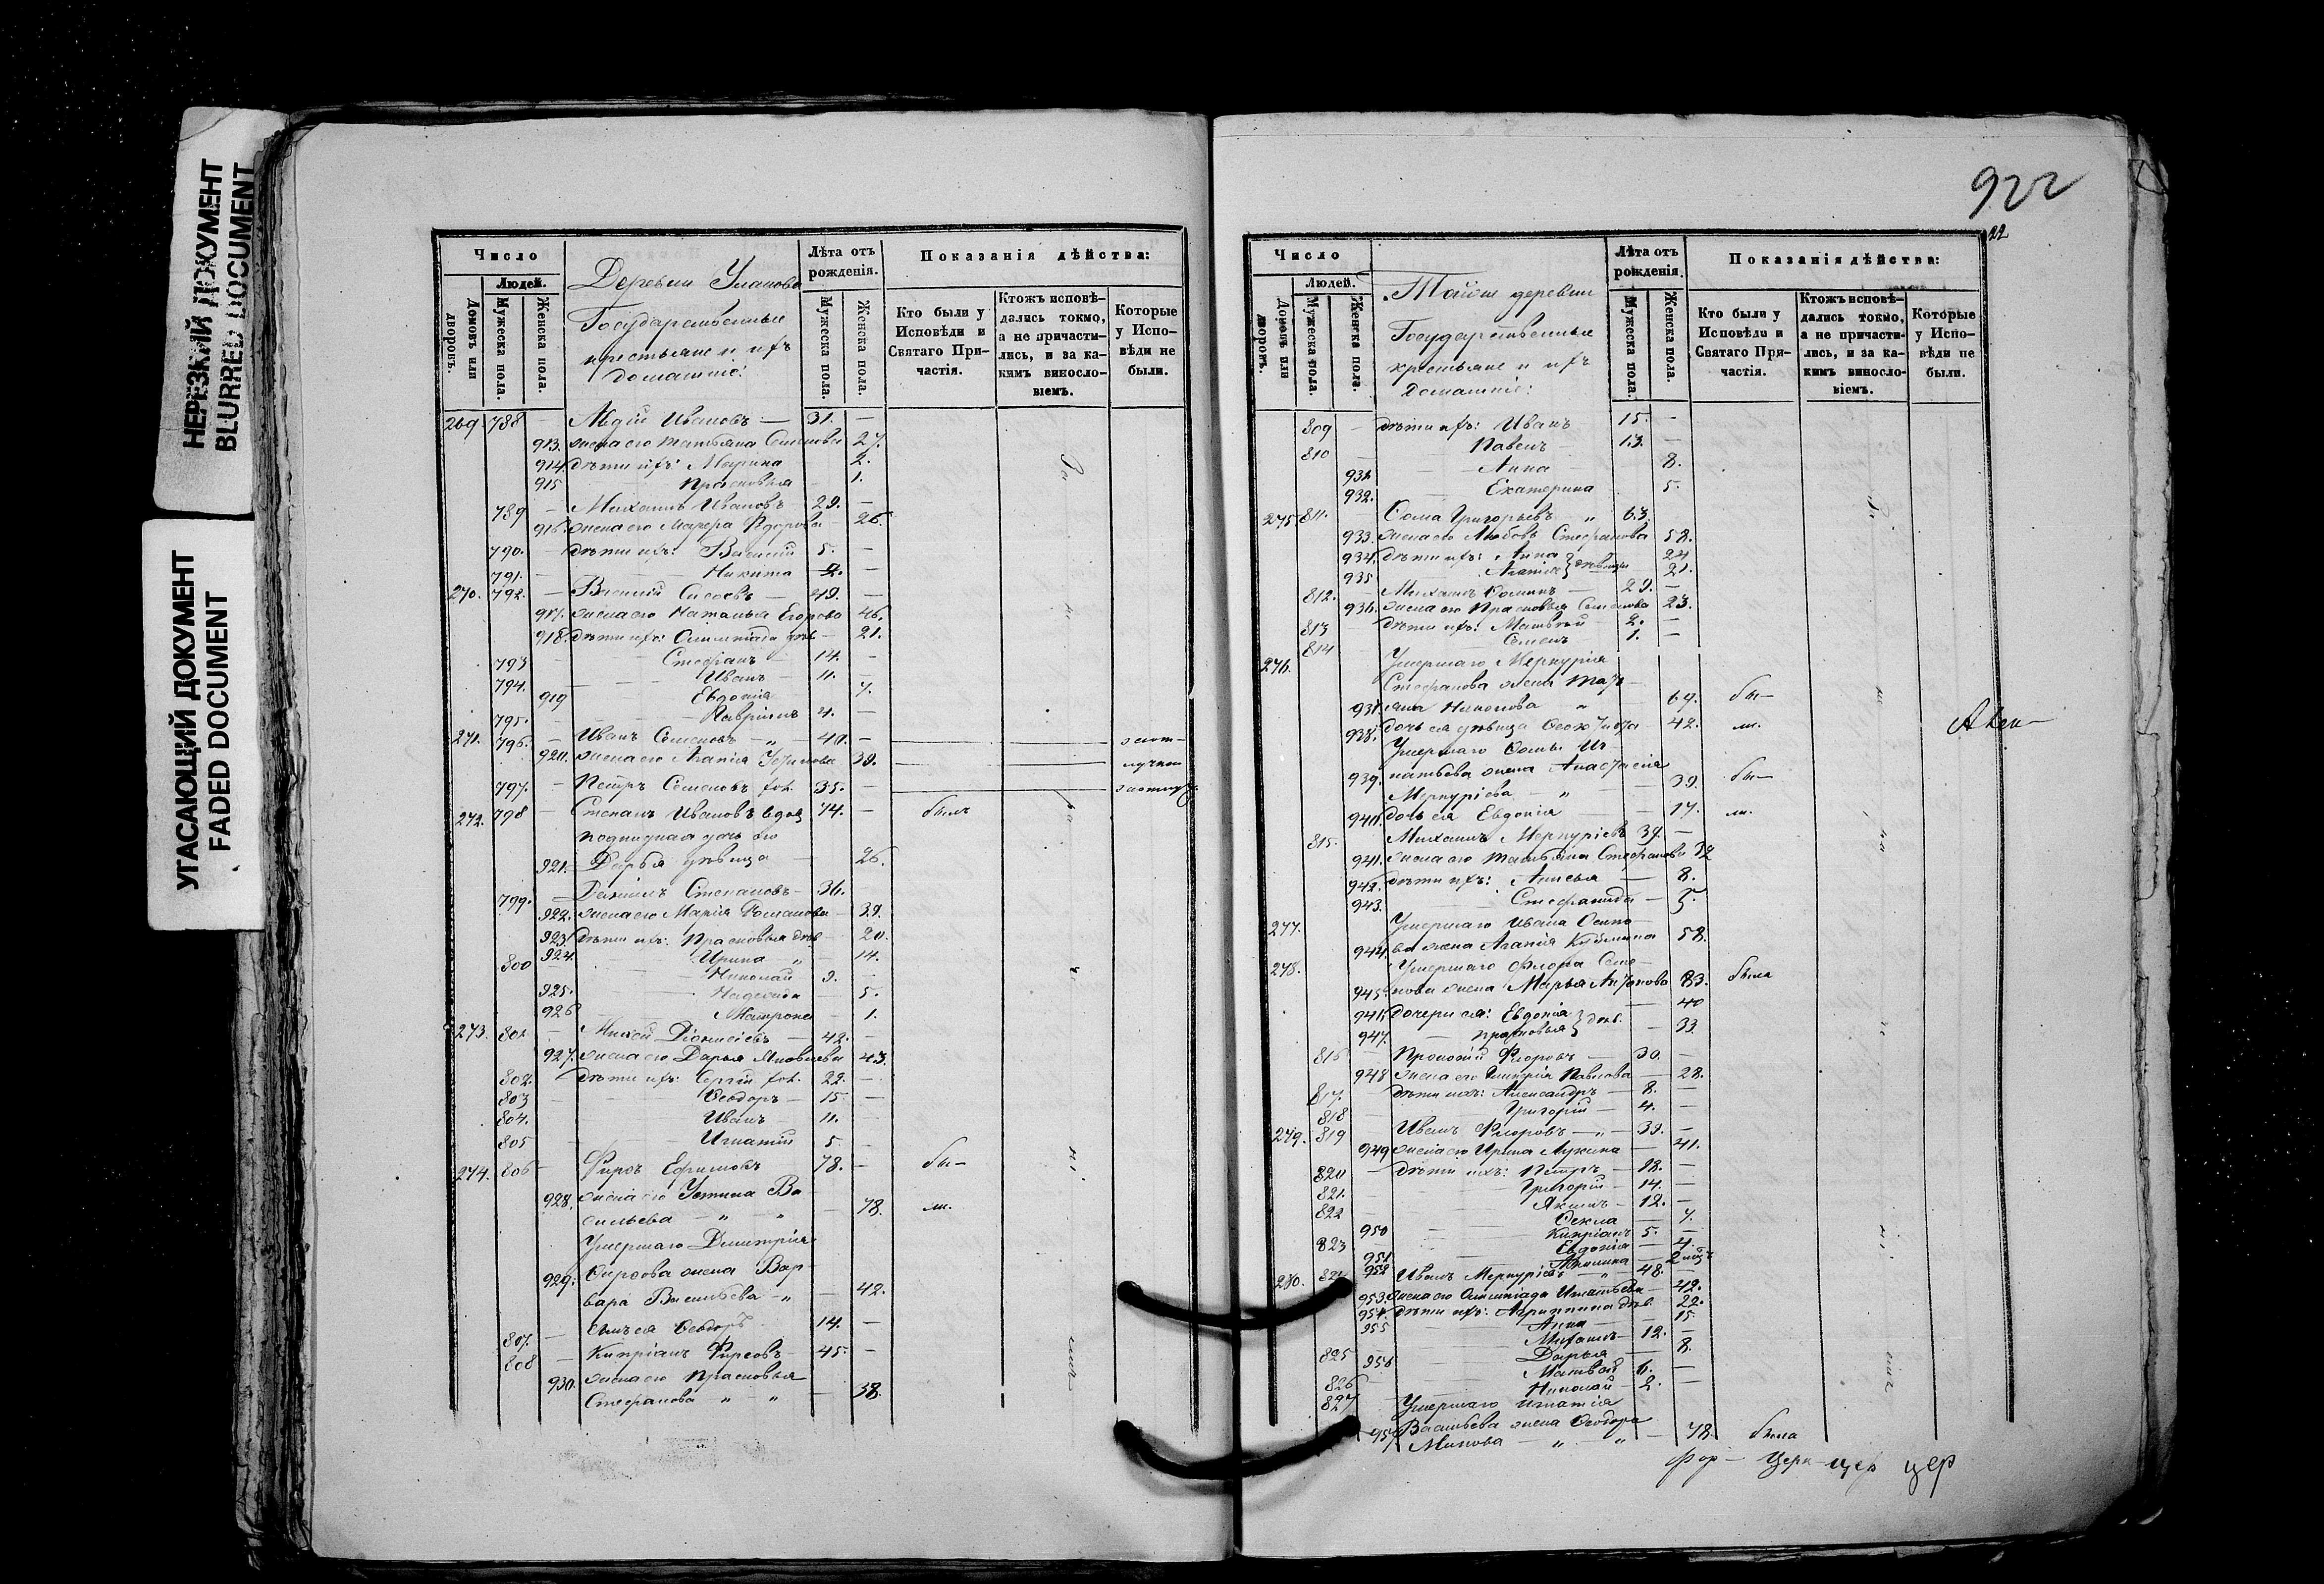 НЕРЕЗКИЙ ДОКУМЕНТ
BLURRED DOCUMENT
УГАСАЮЩИЙ ДОКУМЕНТ
FADED DOCUMENT
Число
Людей.
Домовъ или дворовъ.
Мужеска пола.
Женска пола.
Деревни Уланова
Государственные
крестьяне и ихъ
домашніе:
Лѣта отъ рожденія.
Мужеска пола.
Женска пола.
Показанія дѣйства:
Кто были у Исповѣди и Святаго Причастія.
Ктожъ исповѣдались токмо, а не причастились, и за какимъ винословіемъ.
Которые у Исповѣди не были.
269 788 — Авдій Ивановъ — 31. —
913. жена его Татьяна 27.
914. дѣти ихъ: Марина 2.
915 Прасковья 1.
789 — Михаилъ Ивановъ 29. —
916. жена его 26.
790. — дѣти ихъ: Василій 5. —
791. — Никита 2. —
270. 792. — Василій 49. —
917. жена его Наталья Егорова 46.
918. дѣти ихъ: Олимпіада дѣв — 21.
793 Стефанъ 14. —
794. Иванъ 11. —
919 Евдокія 7.
795. Гавріилъ 4. —
271. 796. — Иванъ Семеновъ — „ — 40. —
920. жена его Агапія 39.
797. — Петръ Семеновъ хол. 35. —
272. 798 — Степанъ Ивановъ вдов 74. — былъ
его
921. Дарья дѣвица 26.
799. — Даніилъ Степановъ — 36.
922. жена его Марія Романова — 39.
923 дѣти ихъ: Прасковья дѣв — 20.
924. Ирина „ 14.
800 Николай 9. —
925. Надежда 5.
926 Матрона 1.
273. 801. — Михей Діонисіевъ — 42. —
927. жена его Дарья Яковлева 43.
802. дѣти ихъ: Сергій хол. 22. —
803 Ѳеодоръ 15 —
804. Иванъ 11. —
805 Игнатій 5 —
274. 806 — Фирсъ Ефимовъ 78. — бы-
928. жена его Устина Ва-
сильева „ „ — 78. ли.
Умершаго Димитрія
929. Фирсова жена Вар-
вара Васильева „ — 42.
807. — сынъ ея Ѳеодоръ 14. —
808 — Кипріанъ Фирсовъ 45. —
930. жена его Прасковья
Стефанова „ „ — 38.
922
22
Число
Людей.
Домовъ или дворовъ.
Мужеска пола.
Женска пола.
Тойже деревни
Государственные
крестьяне и ихъ
домашніе:
Лѣта отъ рожденія.
Мужеска пола.
Женска пола.
Показанія дѣйства:
Кто были у Исповѣди и Святаго Причастія.
Ктожъ исповѣдались токмо, а не причастились, и за какимъ винословіемъ.
Которые у Исповѣди не были.
809 — дѣти ихъ: Иванъ 15. —
810 Павелъ 13. —
931. Анна 8.
932. Екатерина 5.
275 811. Ѳома Григорьевъ „ 63.
933. жена его Любовь Стефанова 58.
934. дѣти ихъ: Анна 24
935 Агапія } дѣвицы 21.
812. Михаилъ Ѳоминъ 29. —
936. жена его Прасковья Семенова 23.
813 дѣти ихъ: Матвѣй 2. —
814 Семенъ 1. —
276. Умершаго Меркурія
Стефанова жена Тать-
937. яна Никонова „ 69. бы-
938. дочь ея дѣвица 42. ли.
Умершаго Ѳомы Иг-
939. натьева жена Анастасія
Меркуріева „ 39. бы-
940. дочь ея Евдокія — 17. ли.
815. Михаилъ Меркуріевъ 39. —
941. жена его Татьяна Стефанова 32
942. дѣти ихъ: Анисья — 8.
943. Стефанида — 5.
277. Умершаго Ивана Осипо-
944. ва жена Агапія Кузьмина 58.
278. Умершаго Флора Семе-
945. нова жена Марья 83. была
946. дочери ея: Евдокія 40
947. Прасковья } дѣв. 33
816 — Прокопій Флоровъ — 30. —
948 жена его Павлова — 28.
817. дѣти ихъ: Александръ — 8. —
818 Григорій — 4. —
279. 819 Иванъ Флоровъ — „ — 39. —
949 жена его Ирина Лукина — 41.
820 — дѣти ихъ: Петръ — 18. —
821. Григорій — 14. —
822 Якимъ — 12. —
950 Ѳекла — 7.
823 Кипріанъ 5. —
951 Евдокія — 4.
952
280. 824 Иванъ Меркуріевъ „ 48. —
953. жена его Олимпіада Игнатьева — 42.
954. дѣти ихъ: Агриппина дѣв. 22.
955 Анна — 15.
825 Михаилъ — 12. —
956 Дарья — 8.
826 Матвѣй 6. —
827 Николай 2. —
Умершаго Игнатія
957 Васильева жена Ѳеодора
„ „ — 78. была